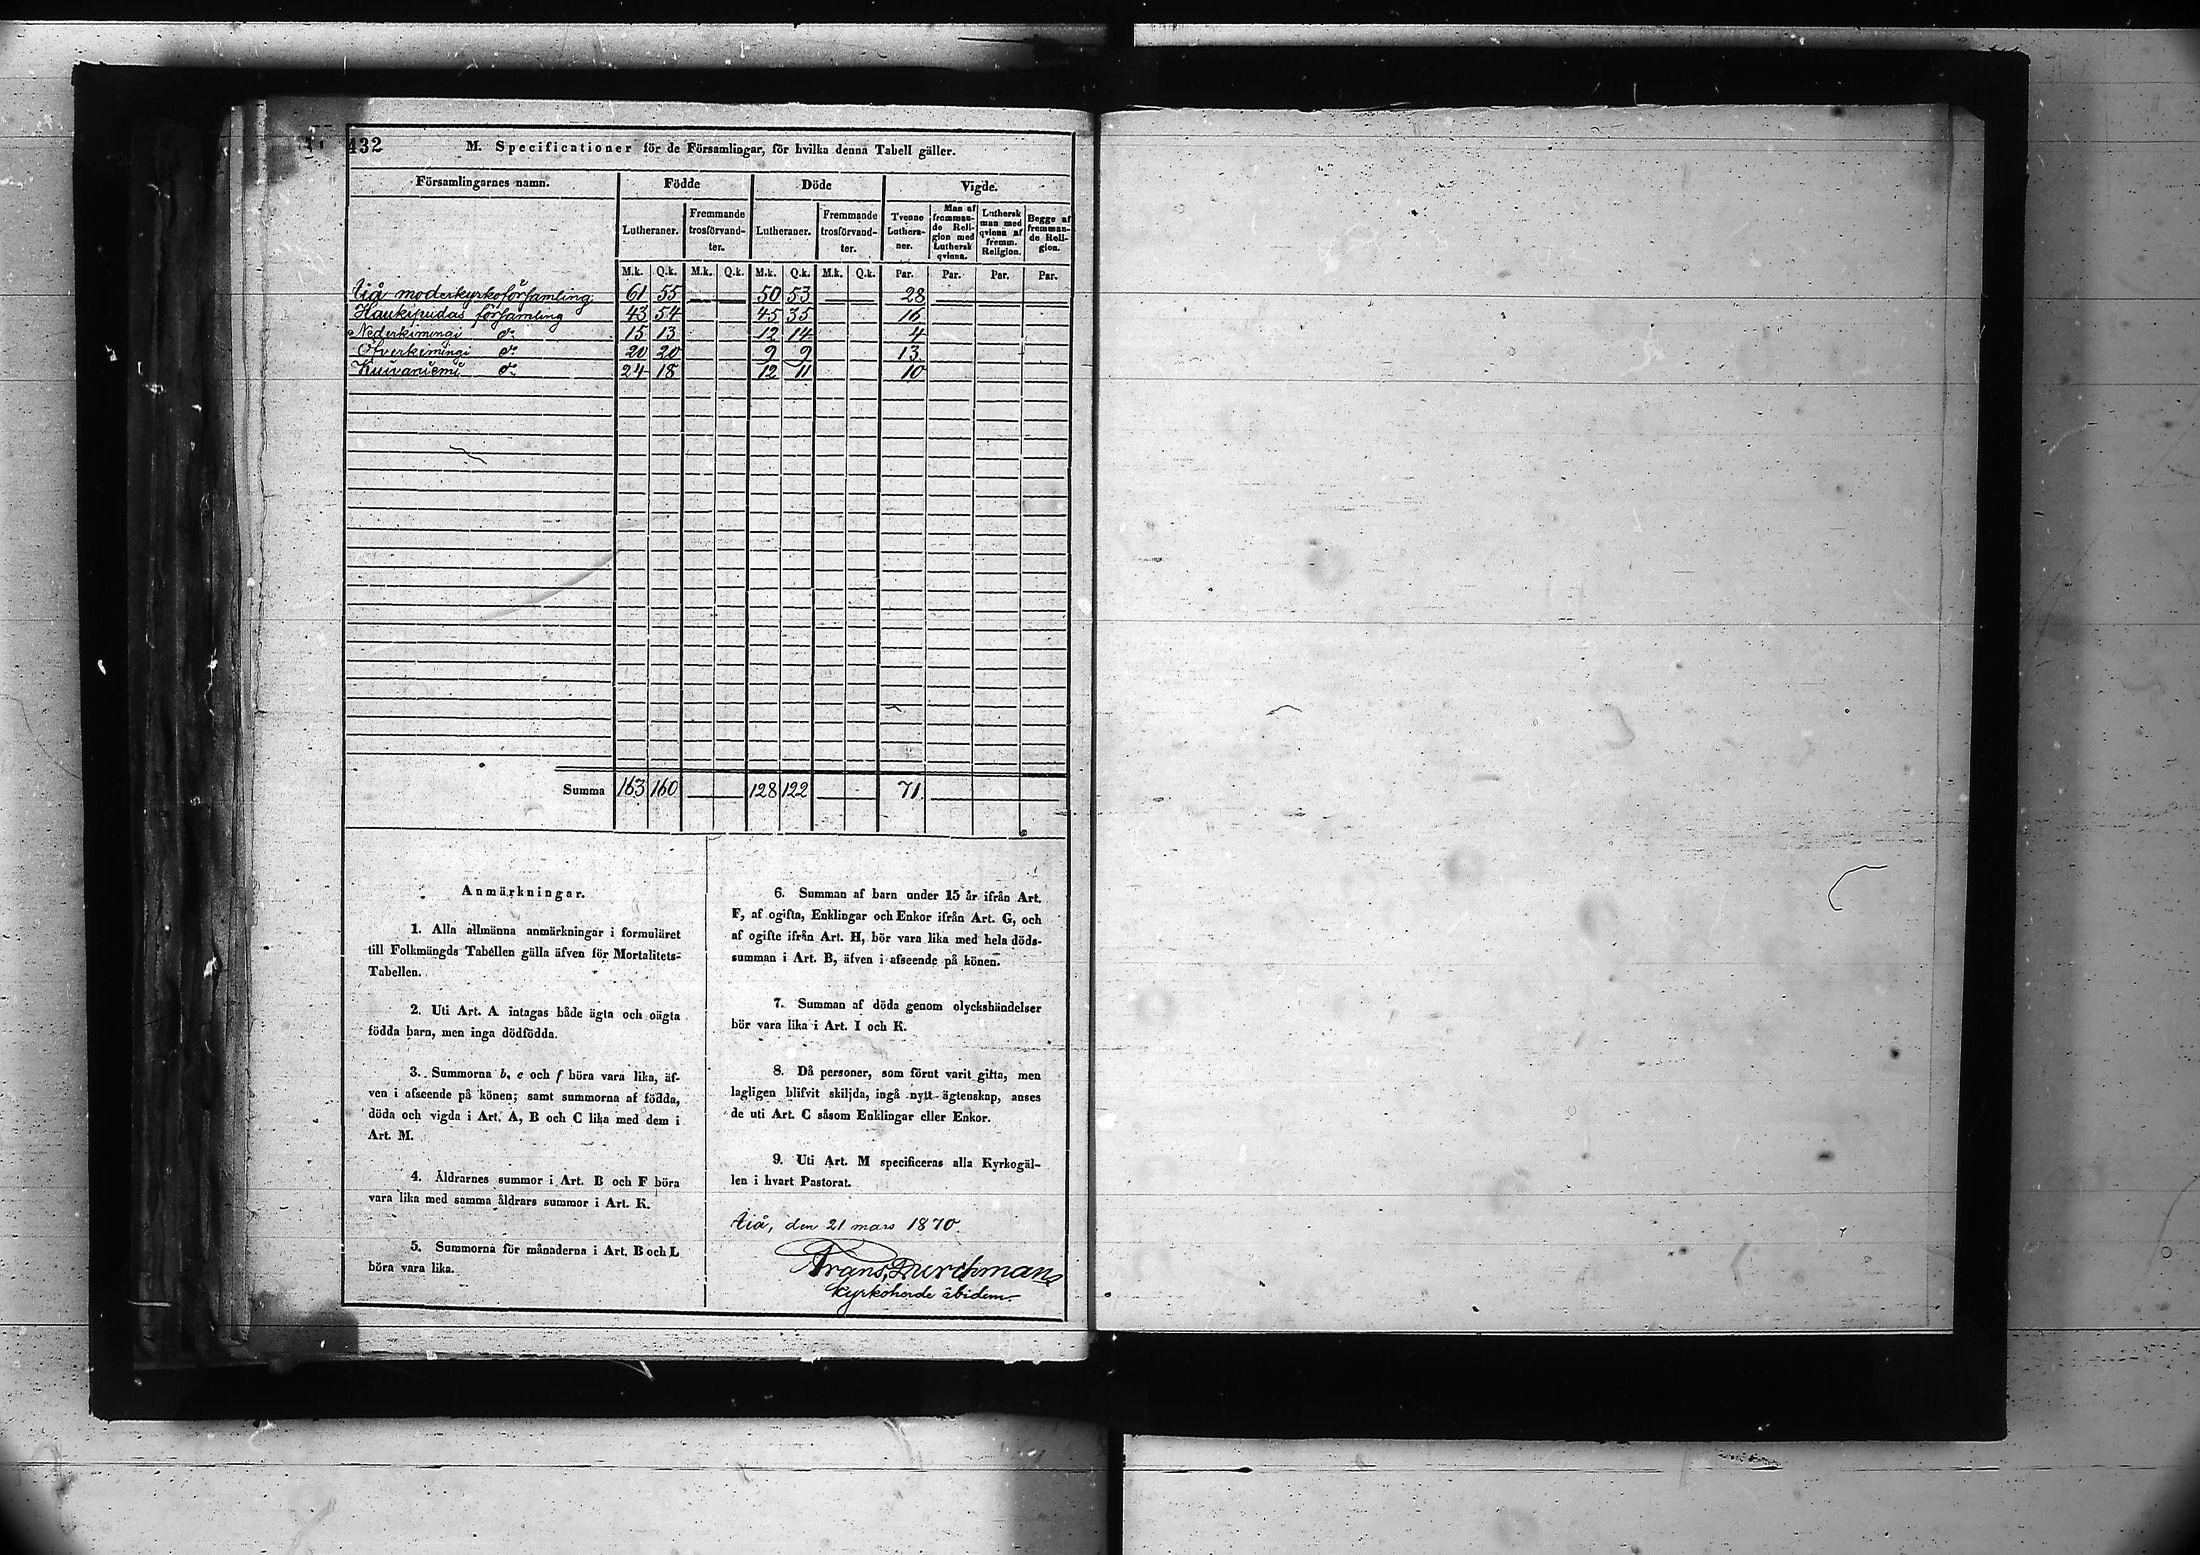 432
M. Specificationer för de Församlingar, för hvilka denna Tabell gäller.
Församlingarnes namn. Födde Döde Vigde.
Lutheraner. Fremmande trosförvand- ter. Lutheraner. Fremmande trosförvand- ter. Tvenne Luthera- ner. Man af fremman- de Reli- gion med Luthersk qvinna. Luthersk man med qvinna af fremm. Religion. Begge af fremman- de Reli- gion.
M.k. Q.k. M.k. Q.k. M.k. Q.k. M.k. Q.k. Par. Par. Par. Par.
Iiå moderkyrkoförsamling 61 55 — — 50 53 — — 28 — — —
Haukipudas församling 43 54 45 35 16
Nederkimingi do 15 13 12 14 4
Öfverkimingi do 20 20 9 9 13
Kuivaniemi do 24 18 12 11 10
Summa 163 160 — — 128 122 — — 71 — — —
Anmärkningar.
1. Alla allmänna anmärkningar i formuläret
till Folkmängds Tabellen gälla äfven för Mortalitets-
Tabellen.
2. Uti Art. A intagas både ägta och oägta
födda barn, men inga dödfödda.
3. Summorna b, e och f böra vara lika, äf-
ven i afseende på könen; samt summorna af födda,
döda och vigda i Art. A, B och C lika med dem i
Art. M.
4. Åldrarnes summor i Art. B och F böra
vara lika med samma åldrars summor i Art. K.
5. Summorna för månaderna i Art. B och L
böra vara lika.
6. Summan af barn under 15 år ifrån Art.
F, af ogifta, Enklingar och Enkor ifrån Art. G, och
af ogifte ifrån Art. H, bör vara lika med hela döds-
summan i Art. B, äfven i afseende på könen.
7. Summan af döda genom olyckshändelser
bör vara lika i Art. I och K.
8. Då personer, som förut varit gifta, men
lagligen blifvit skiljda, ingå nytt ägtenskap, anses
de uti Art. C såsom Enklingar eller Enkor.
9. Uti Art. M specificeras alla Kyrkogäl-
len i hvart Pastorat.
Iiå, den 21 mars 1870.
Frans Durchman
Kyrkoherde ibidem.